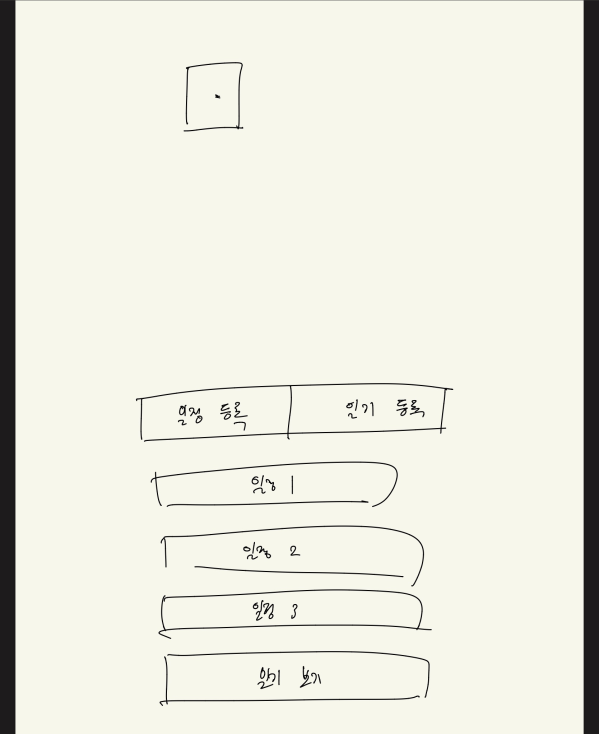 일정 등록 일기 등록
일정 1
일정 2
일정 3
일기 보기